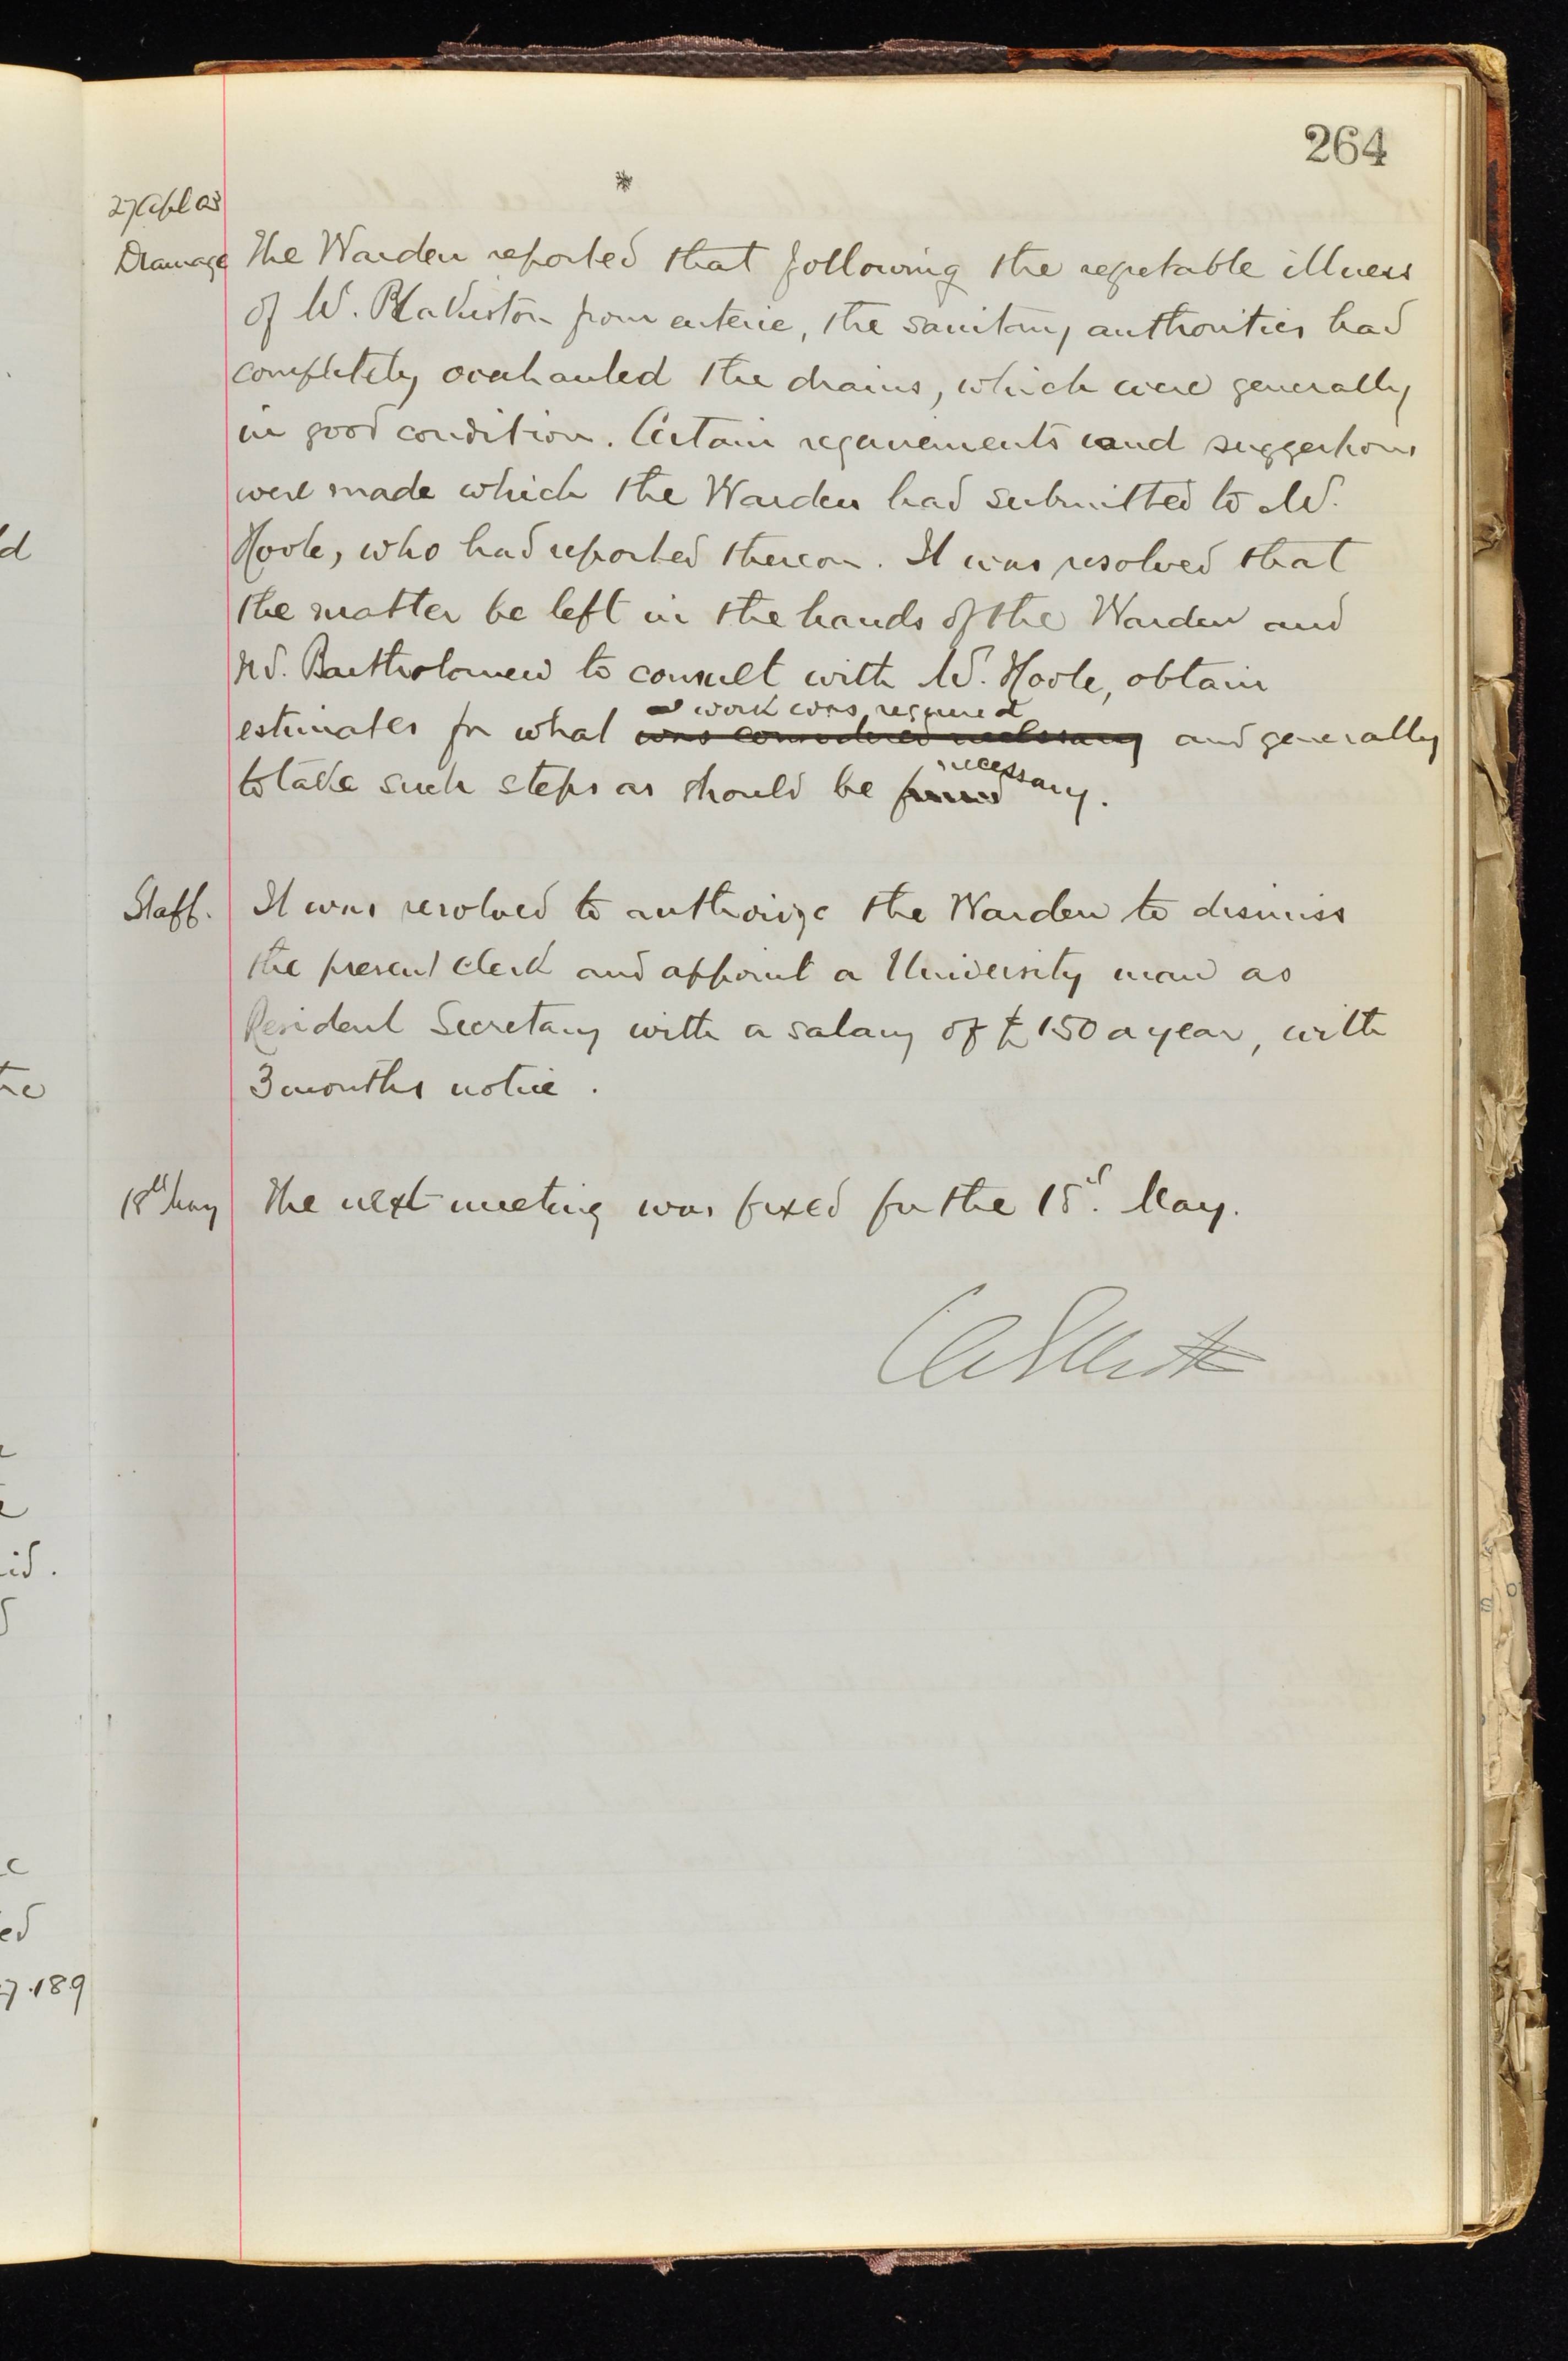 264
27 Apl 03
Drainage The Warden reported that following the regretable illness
of Mr. Blakiston from enteric, the sanitary authorities had
completely overhauled the drains, which were generally
in good condition. Certain requirements and suggestions
were made which the Warden had submitted to Mr.
Hoole, who had reported thereon. It was resolved that
the matter be left in the hands of the Warden and
Mr. Bartholomew to consult with Mr. Hoole, obtain
work was required
estimates for what was considered necessary and generally
necessary.
to take such steps as should be found
Staff. It was resolved to authorize the Warden to dismiss
the present clerk and appoint a University man as
Resident Secretary with a salary of £150 a year, with
3 months notice.
18th May The next meeting was fixed for the 18th. May.
d
id.
ed
7.189